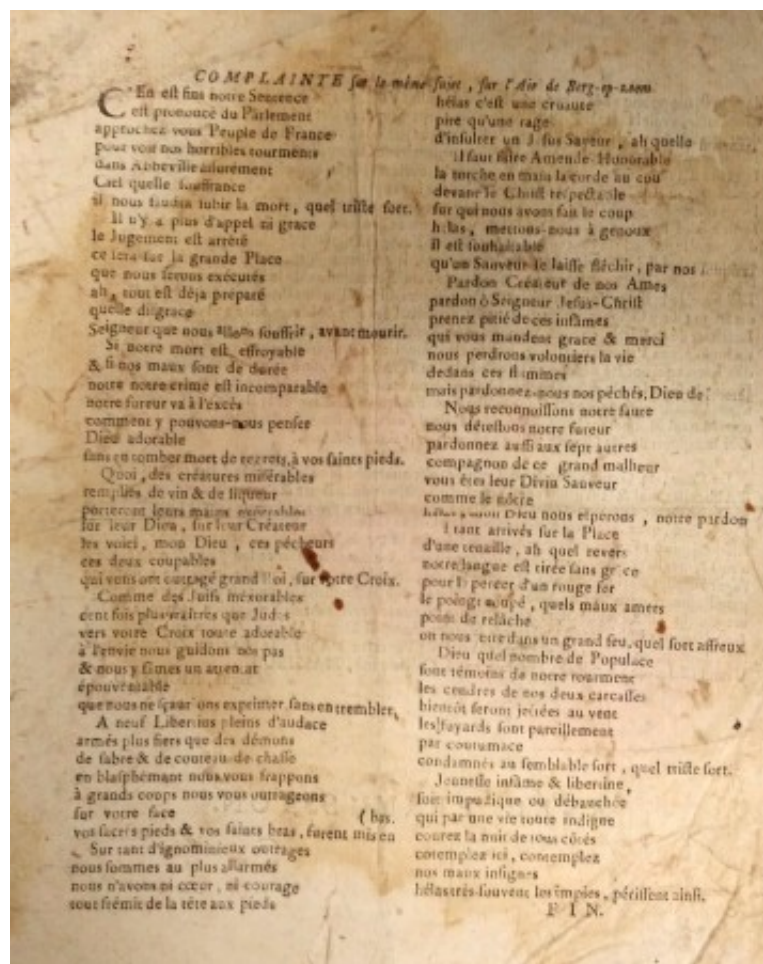 COMPLAINTE sur le même sujet, sur l'Air de Berg-op-zoom
C'En est fins notre Sentence
est prononcé du Parlement
approchez vous Peuple de France
pour voir nos horribles tourments
dans Abbeville assurement
Ciel quelle souffrance
il nous faudra subir la mort, quel triste sort.
Il n'y a plus d'appel ni grace
le Jugement est arrêté
ce sera sur la grande Place
que nous serons exécutés
ah, tout est déja préparé
quelle disgrace
Seigneur que nous allons souffrir, avant mourir.
Si notre mort est effroyable
& si nos maux sont de durée
notre notre crime est incomparable
notre fureur va à l'excés
comment y pouvons-nous penser
Dieu adorable
sans en tomber mort de regrets, à vos saints pieds.
Quoi, des créatures misérables
remplies de vin & de liqueur
porteront leurs mains exécrables
sur leur Dieu, sur leur Créateur
les voici, mon Dieu, ces pécheurs
ces deux coupables
qui vous ont outragé grand Roi, sur votre Croix.
Comme des Juifs inéxorables
cent fois plus traîtres que Judas
vers votre Croix toute adorable
à l'envie nous guidons nos pas
& nous y fimes un attentat
épouventable
que nous ne sçaurions exprimer sans en trembler,
A neuf Libertins pleins d'audace
armés plus fiers que des démons
de sabre & de couteau de chasse
en blasphêmant nous vous frappons
à grands coups nous vous outrageons
sur votre face
( bas.
vos sacrés pieds & vos saints bras, furent mis en
Sur tant d'ignominieux outrages
nous sommes au plus allarmés
nous n'avons ni cœur, ni courage
tout frémit de la tête aux pieds
hélas c'est une cruauté
pire qu'une rage
d'insulter un Jesus Saveur, ah quelle
Il faut faire Amende-Honorable
la torche en main la corde au cou
devant le Christ respectable
sur qui nous avons fait le coup
hélas, mettons-nous à genoux
il est souhaitable
qu'un Sauveur se laisse fléchir, par nos
Pardon Créateur de nos Ames
pardon ô Seigneur Jesus-Christ
prenez pitié de ces infâmes
qui vous mandent grace & merci
nous perdrons volontiers la vie
dedans ces flammes
mais pardonnez-nous nos péchés, Dieu de
Nous reconnoissons notre faute
nous détestons notre fureur
pardonnez aussi aux sept autres
compagnon de ce grand malheur
vous êtes leur Divin Sauveur
comme le nôtre
hélas, mon Dieu nous esperons, notre pardon
Etant arrivés sur la Place
d'une tenaille, ah quel revers
notre langue est tirée sans grace
pour la percer d'un rouge fer
le poingt coupé, quels maux amers
point de relâche
on nous jette dans un grand feu, quel sort affreux
Dieu quel nombre de Populace
sont témoins de notre tourment
les cendres de nos deux carcasses
bientôt seront jettées au vent
les fayards sont pareillement
par coutumace
condamnés au semblable sort, quel triste sort.
Jeunesse infâme & libertine,
soit impudique ou débauchée
qui par une vie toute indigne
courez la nuit de tous côtés
cotemplez ici, contemplez
nos maux insignes
hélas très-souvent les impies, périssent ainsi.
FIN.